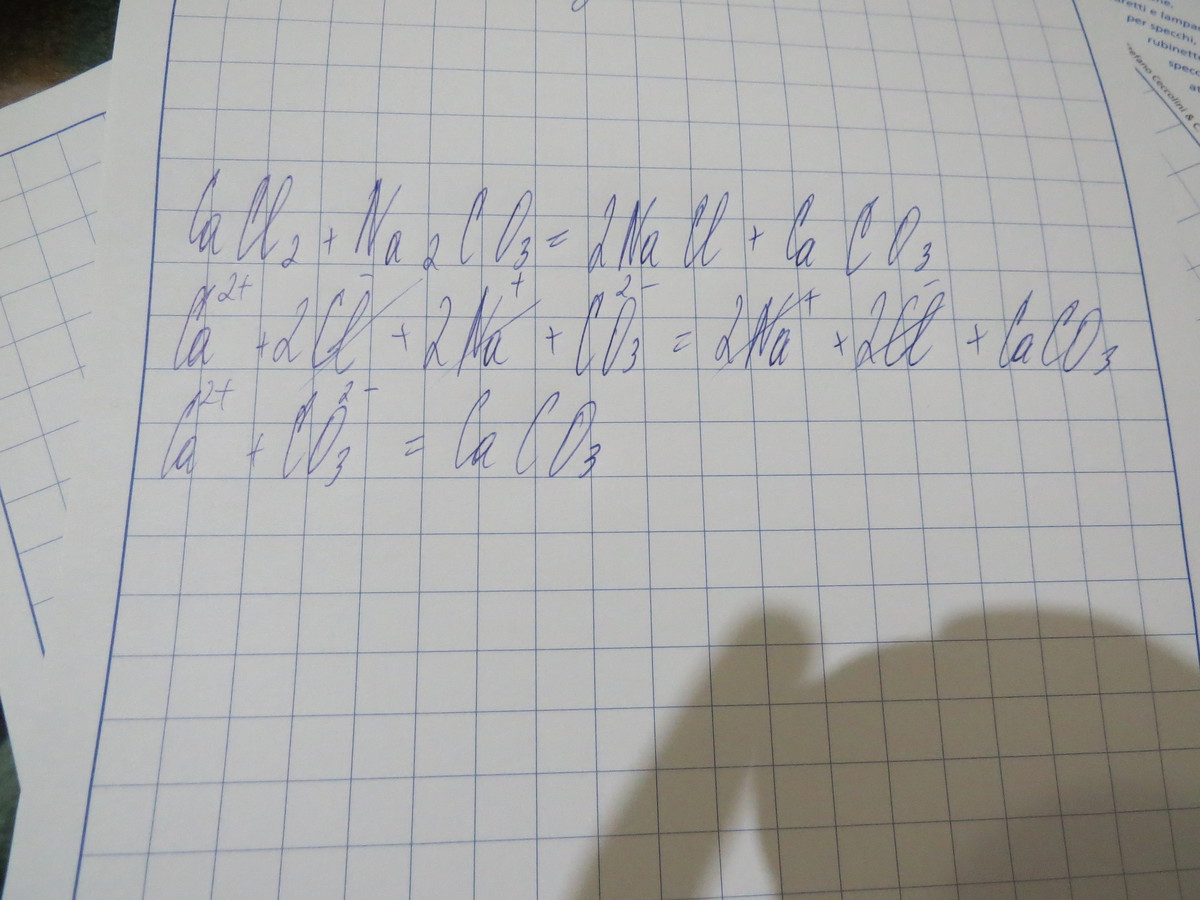 retti e lampa
per specchi,
rubinett
spec
Stefano Ceccolini & C
CaCl₂ + Na₂CO₃ = 2NaCl + CaCO₃
Ca²⁺ + 2Cl⁻ + 2Na⁺ + CO₃²⁻ = 2Na⁺ + 2Cl⁻ + CaCO₃
Ca²⁺ + CO₃²⁻ = CaCO₃